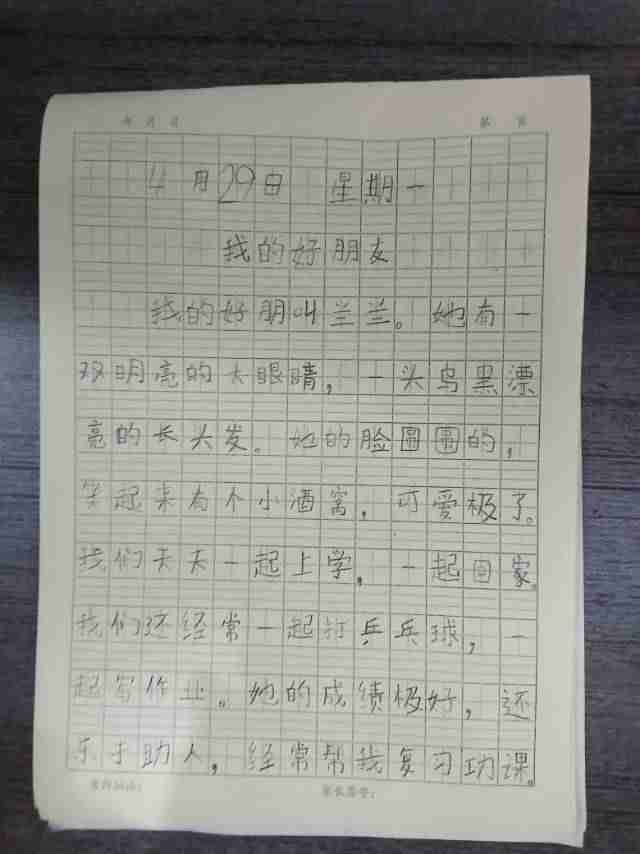 年 月 日 第 页
4月29日 星期一
我的好朋友
我的好朋叫兰兰。她有一
双明亮的大眼睛，一头乌黑漂
亮的长头发。她的脸圆圆的，
笑起来有个小酒窝，可爱极了。
我们天天一起上学，一起回家。
我们还经常一起打乒乓球，一
起写作业。她的成绩极好，还
乐于助人，经常帮我复习功课。
家长签字：